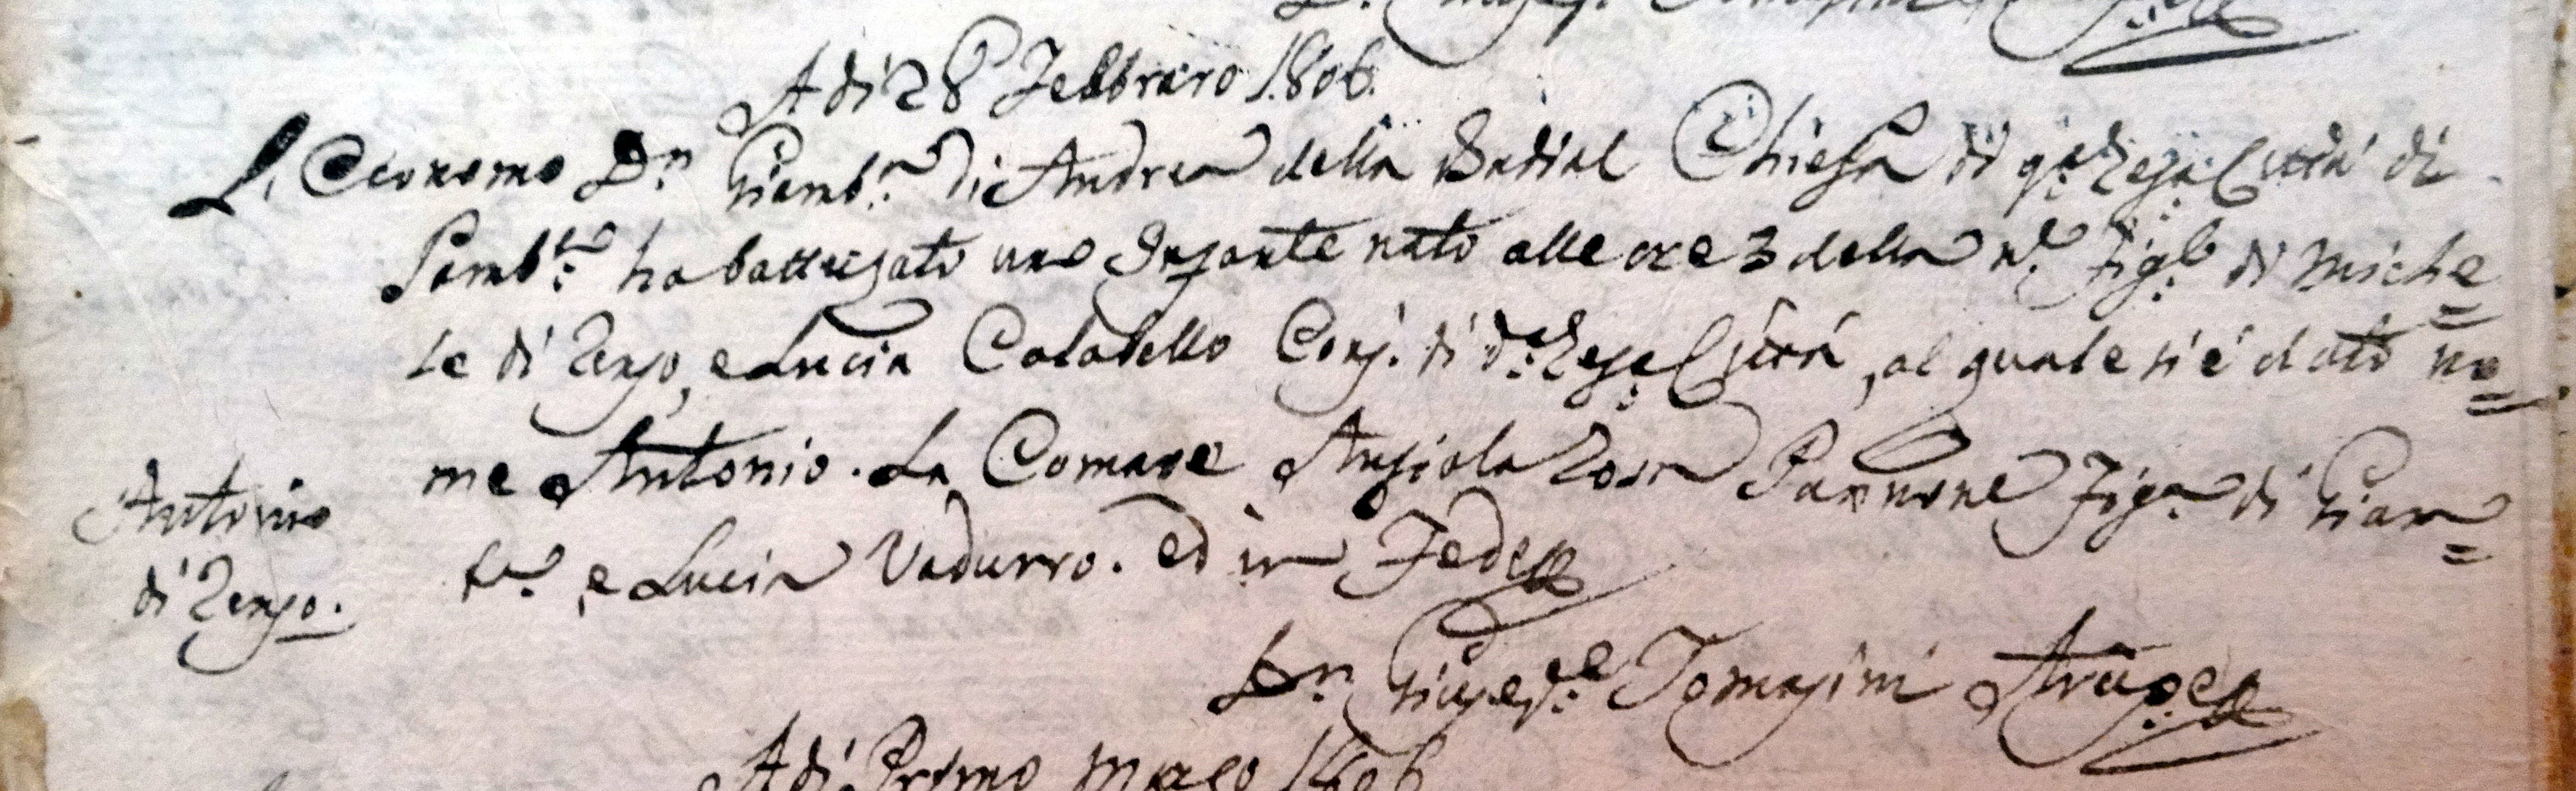 A di 28 Febbraro 1806.
L'Economo Dn Giamb.a di Andrea della Badial Chiesa di q.a Reg.a Città di
S. Bamb.ta ha battezzato uno Infante nato alle ore 3 della n.e Fig.lo di Miche=
le di Renzo, e Lucia Calabello Conj. di d.a Reg.a Città, al quale si è dato no=
me Antonio. La Comare Angiola Rosa Pannone Fig.a di Giam=
b.a, e Lucia Vadurro. ed in Fede
Antonio
di Renzo.
Dn Giusep.e Tomasini Arcip.e
A di Primo Marzo 1806